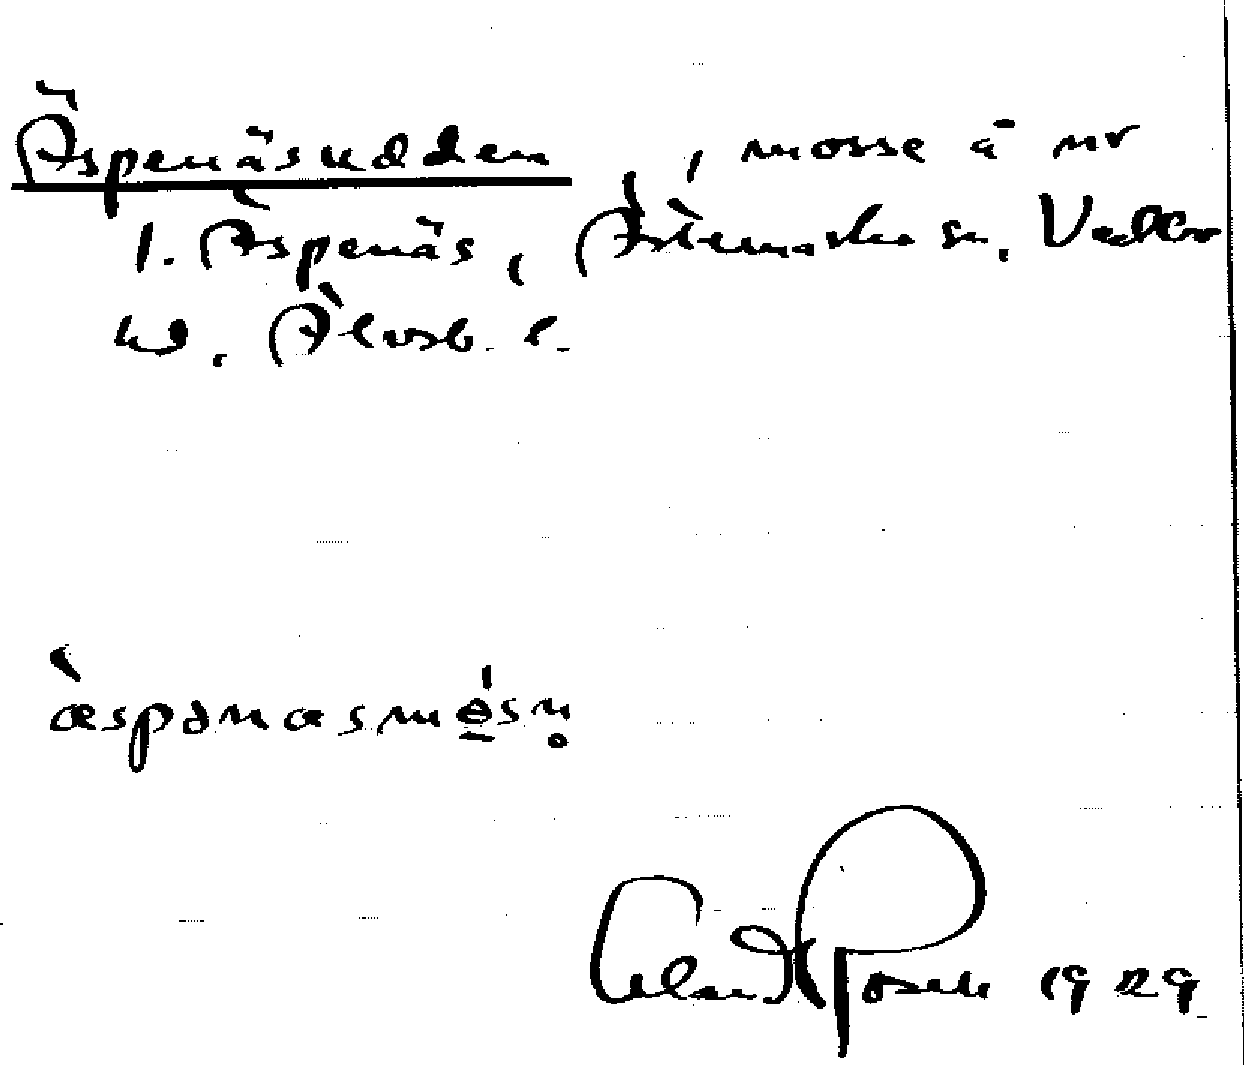 Äspenäsudden, mosse å nr
1. Äspenäs, Ärtemarks sn. Vedbo
hd. Älvsb. l.
æspənæsmós
Rosell 1929